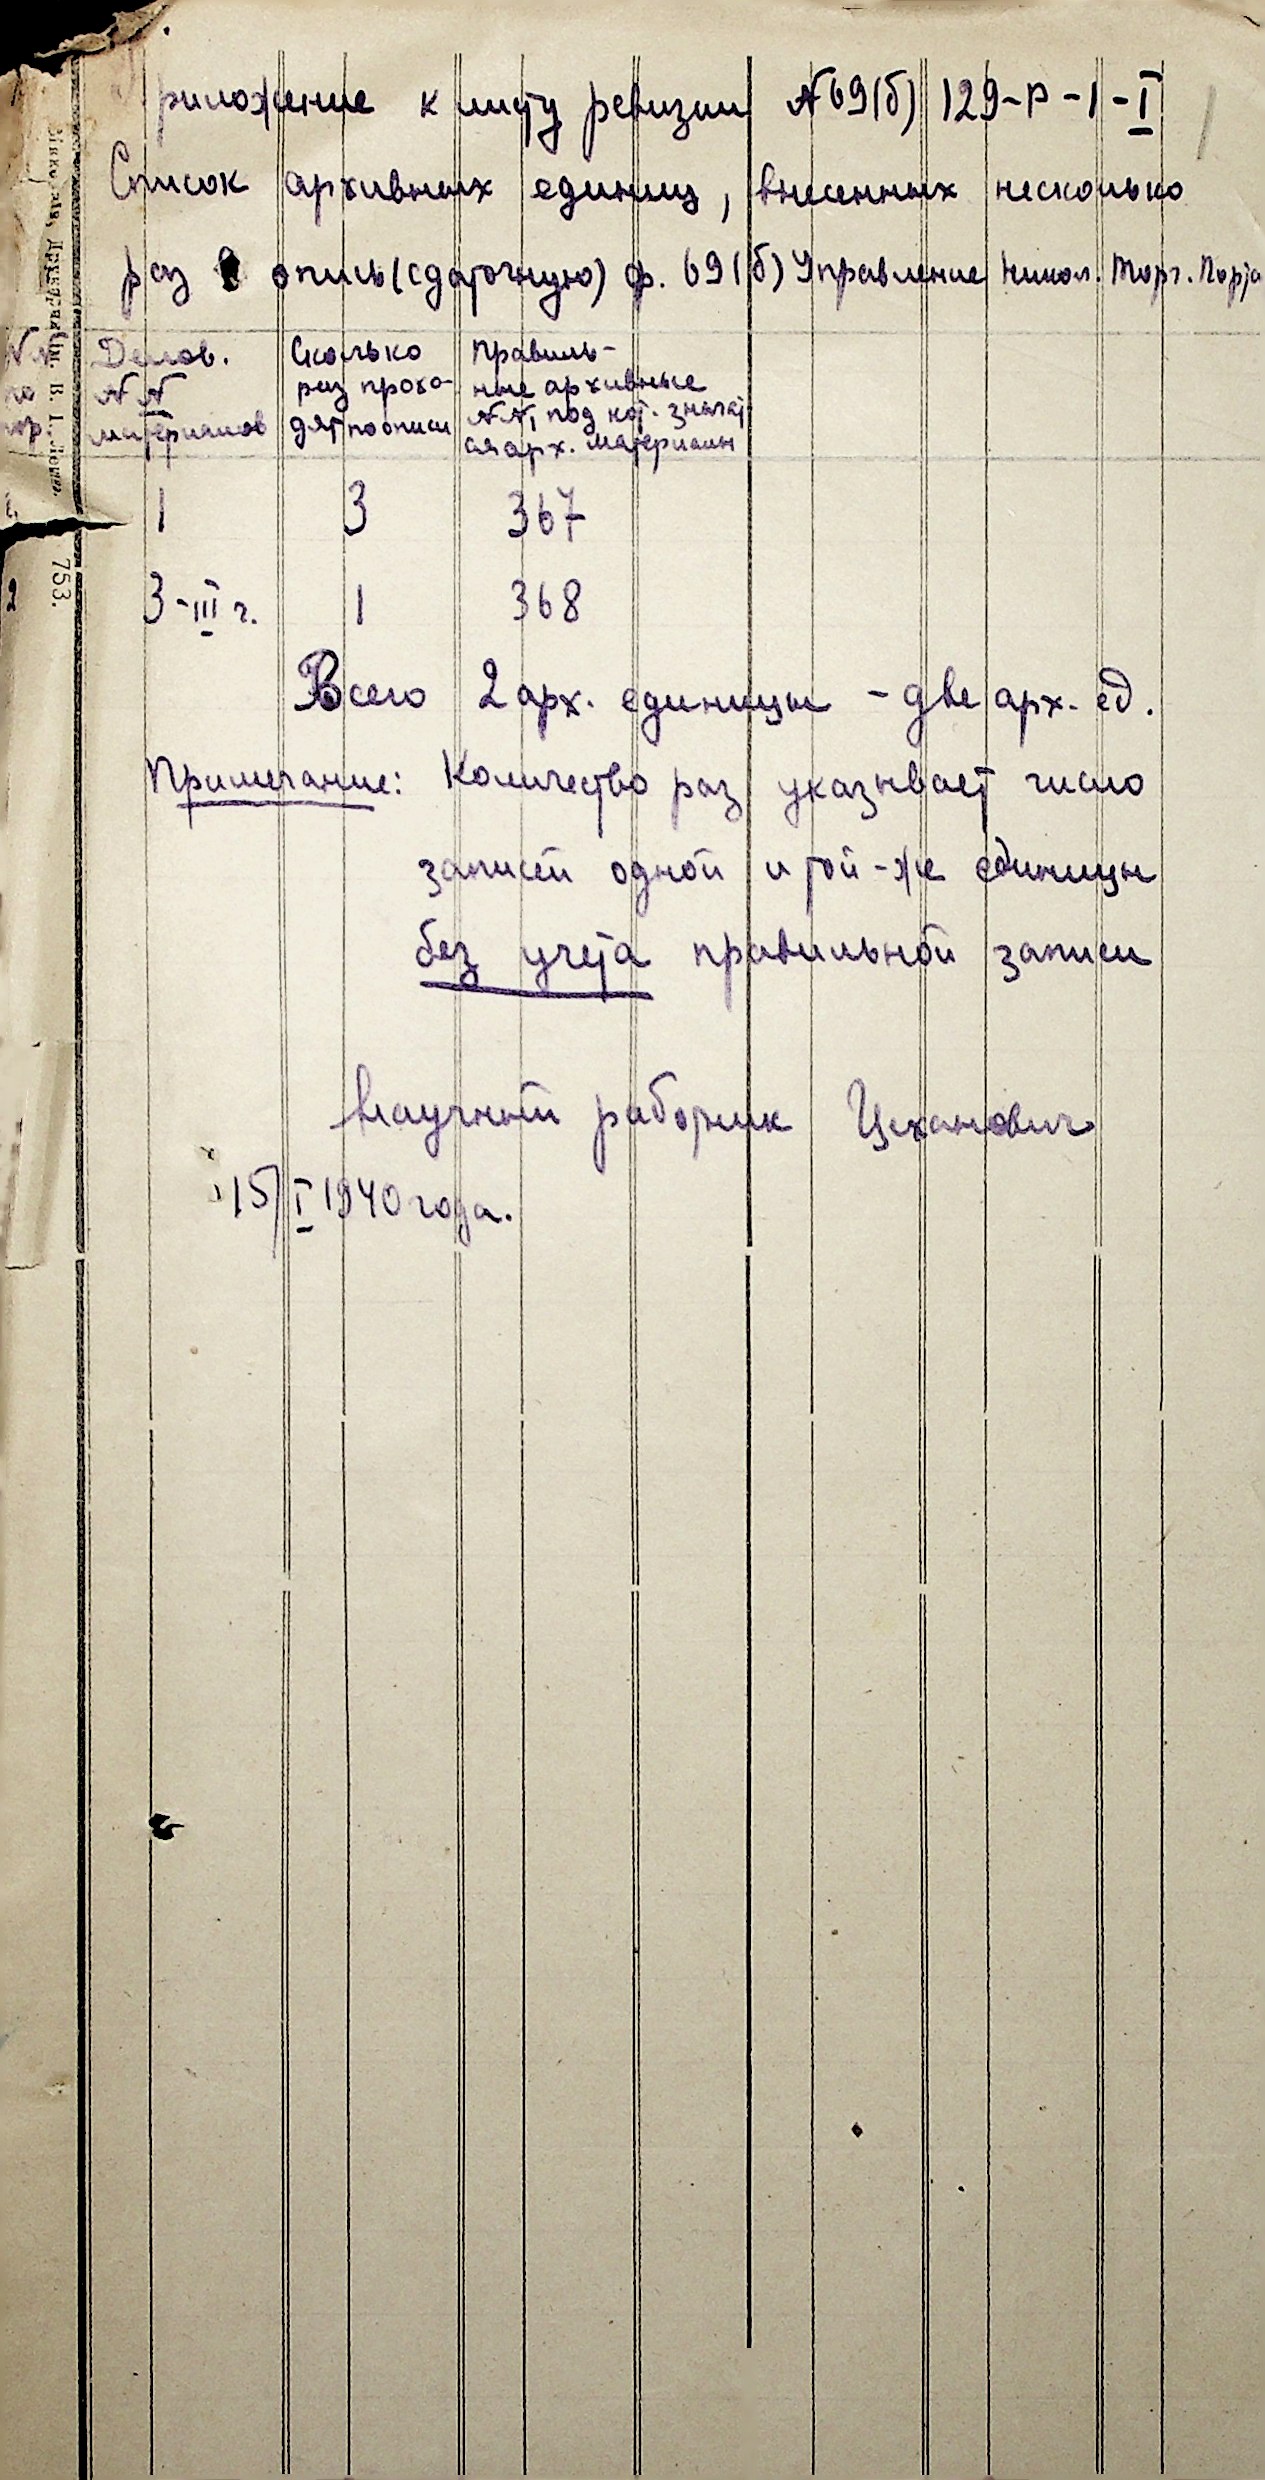 Приложение к листу ревизии №69(б) 129-Р-1-I
Список архивных единиц, внесенных несколько
раз в опись (сдаточную) ф. 69(б) Управление Никол. Торг. Порта
№№ по пор.
Делов. №№ материалов
Сколько раз прохо-
дят по описи
Правиль-
ные архивные
№№, под кот. значат
ся арх. материалы
1 3 367
2 3-III г. 1 368
Всего 2 арх. единицы - две арх. ед.
Примечание: Количество раз указывает число
записей одной и той-же единицы
без учета правильной записи
Научный работник Цеханович
15/I 1940 года.
В. І.
753.